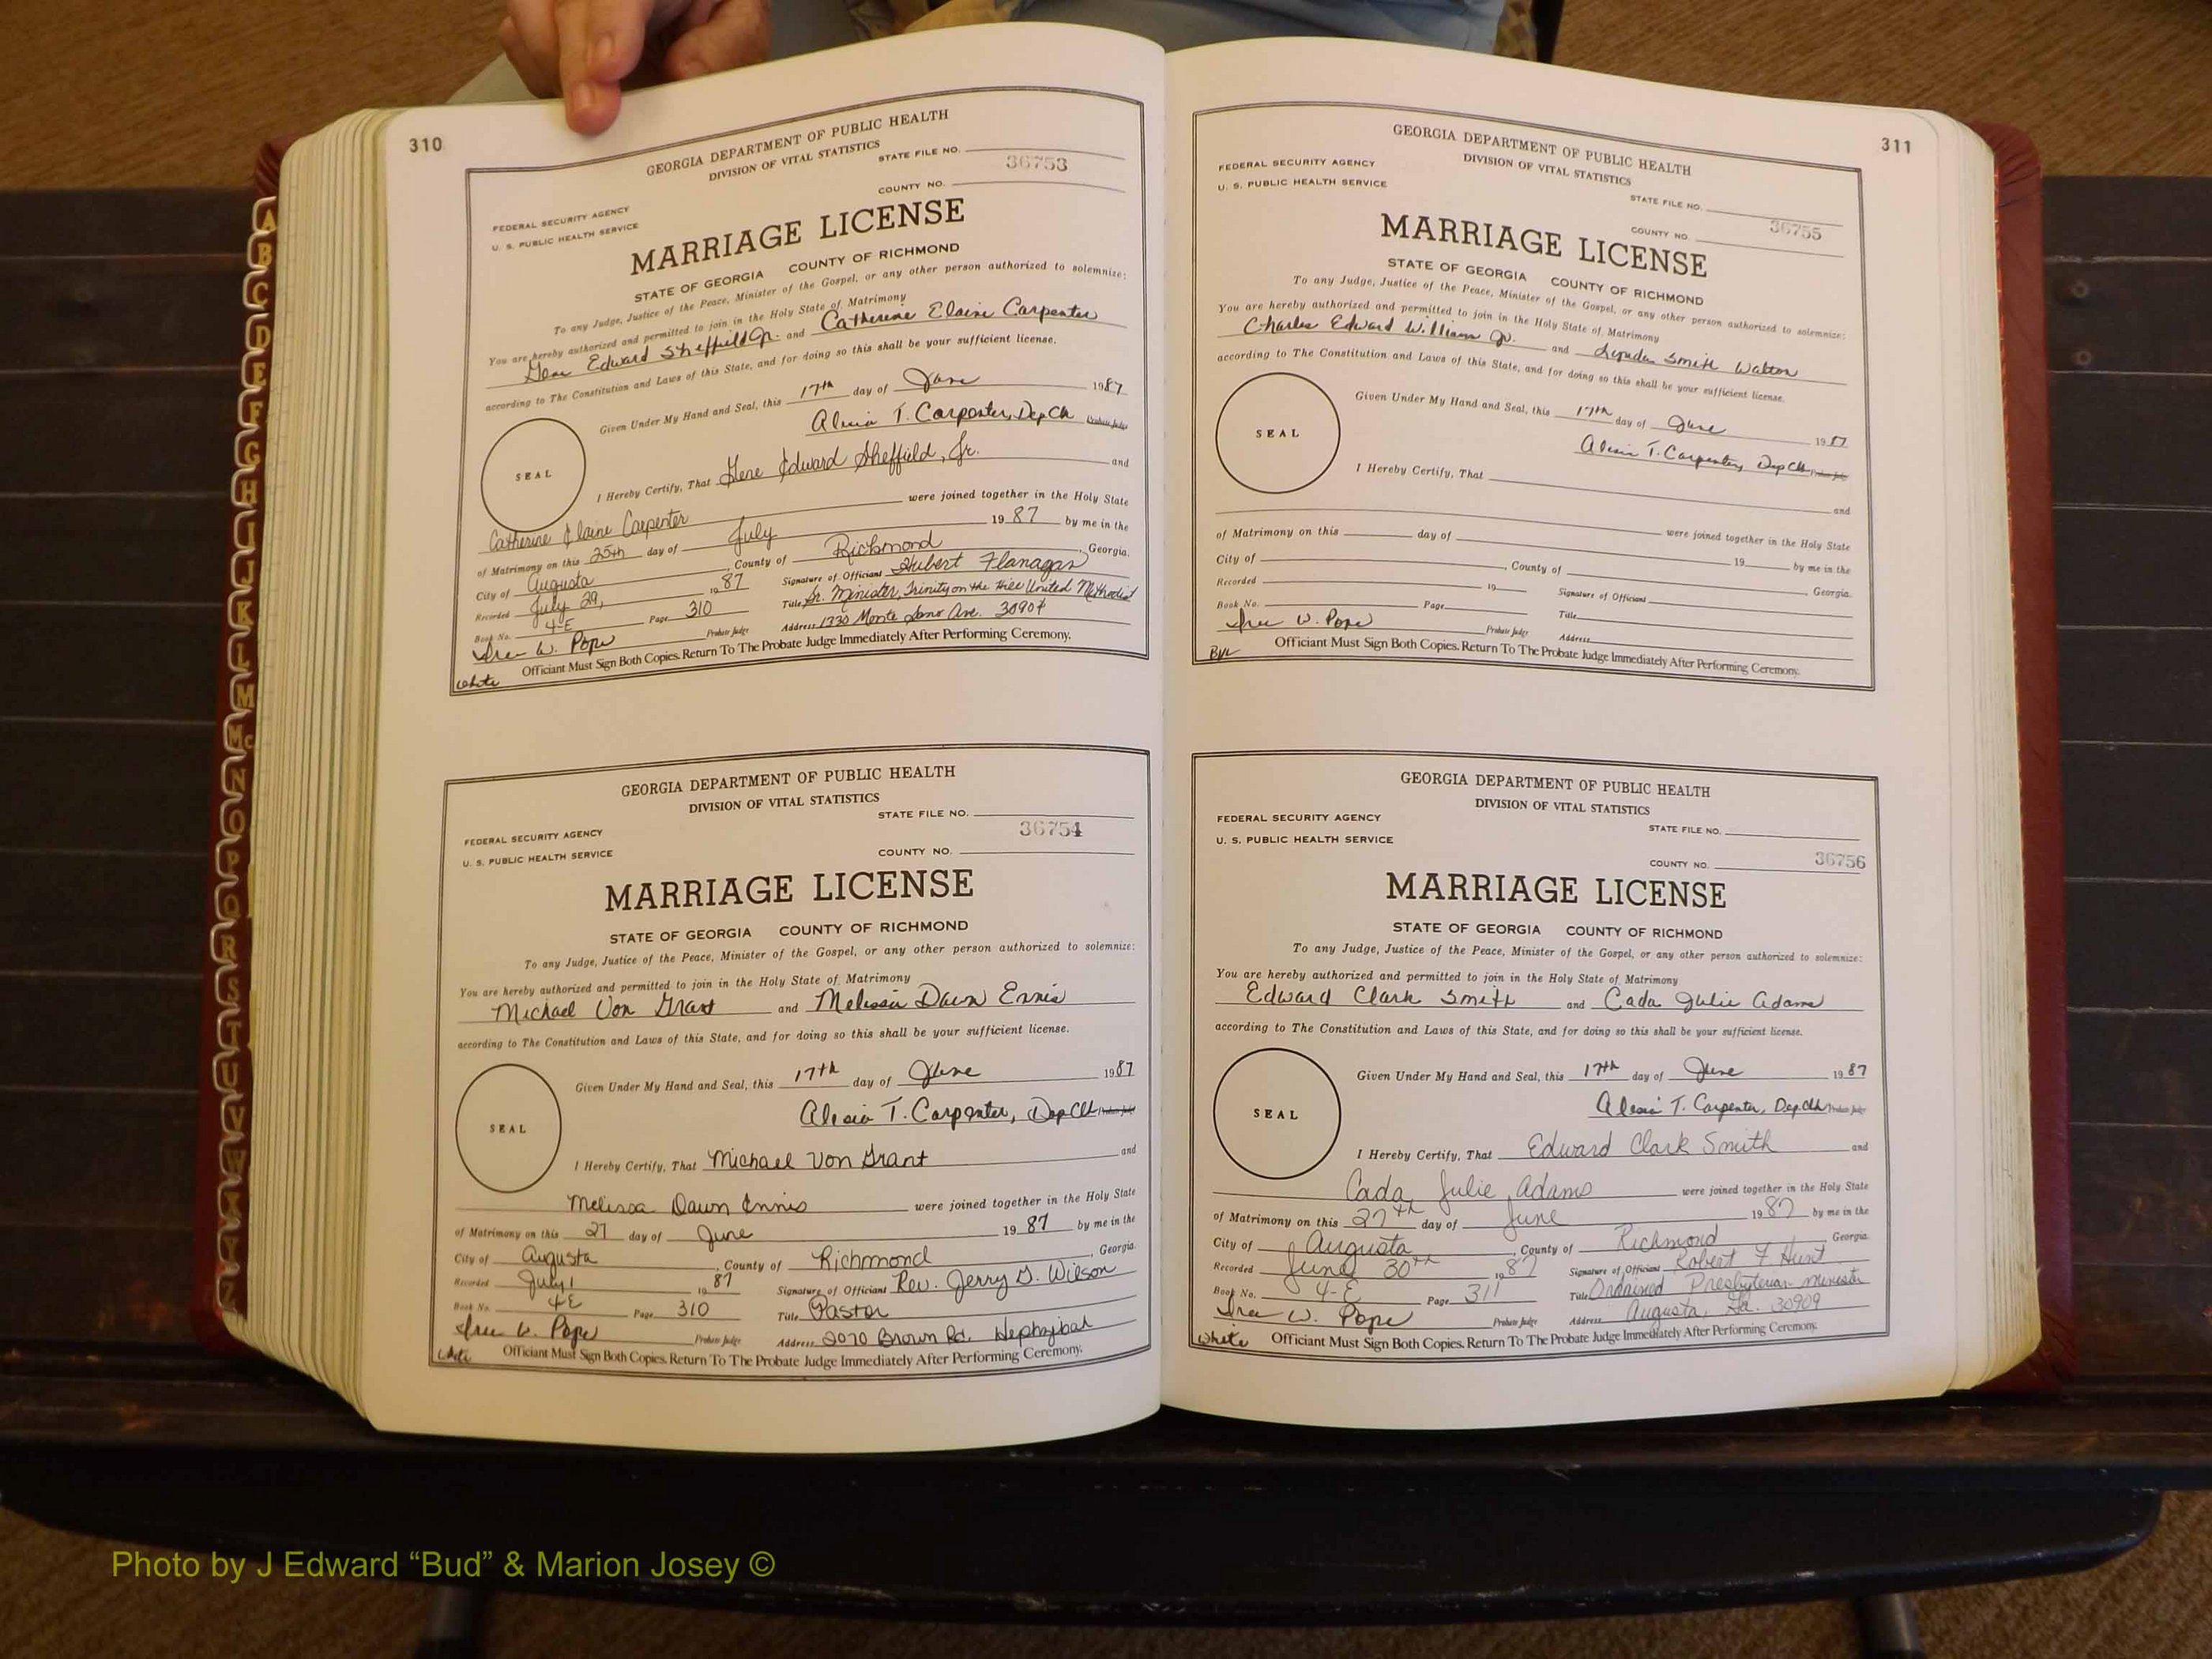 310
GEORGIA DEPARTMENT OF PUBLIC HEALTH
DIVISION OF VITAL STATISTICS
STATE FILE NO.
36753
COUNTY NO.
FEDERAL SECURITY AGENCY
U. S. PUBLIC HEALTH SERVICE
MARRIAGE LICENSE
STATE OF GEORGIA COUNTY OF RICHMOND
To any Judge, Justice of the Peace, Minister of the Gospel, or any other person authorized to solemnize:
You are hereby authorized and permitted to join in the Holy State of Matrimony
Gene Edward Sheffield Jr. and Catherine Elaine Carpenter
according to The Constitution and Laws of this State, and for doing so this shall be your sufficient license.
Given Under My Hand and Seal, this 17th day of June 1987
Alesia T. Carpenter, Dep Clk Probate Judge
SEAL
I Hereby Certify, That Gene Edward Sheffield, Jr. and
Catherine Elaine Carpenter were joined together in the Holy State
of Matrimony on this 25th day of July 1987 by me in the
City of Augusta, County of Richmond, Georgia.
Recorded July 29, 1987 Signature of Officiant Hubert Flanagan
Book No. 4-E Page 310 Title Sr. Minister, Trinity on the Hill United Methodist
W. Pope Probate Judge Address 1330 Monte Sano Ave. 30904
Officiant Must Sign Both Copies. Return To The Probate Judge Immediately After Performing Ceremony.
White
GEORGIA DEPARTMENT OF PUBLIC HEALTH
DIVISION OF VITAL STATISTICS
STATE FILE NO.
36754
FEDERAL SECURITY AGENCY
U. S. PUBLIC HEALTH SERVICE
COUNTY NO.
MARRIAGE LICENSE
STATE OF GEORGIA COUNTY OF RICHMOND
To any Judge, Justice of the Peace, Minister of the Gospel, or any other person authorized to solemnize:
You are hereby authorized and permitted to join in the Holy State of Matrimony
Michael Von Grant and Melissa Dawn Ennis
according to The Constitution and Laws of this State, and for doing so this shall be your sufficient license.
Given Under My Hand and Seal, this 17th day of June 1987
Alesia T. Carpenter, Dep Clk Probate Judge
SEAL
I Hereby Certify, That Michael Von Grant and
Melissa Dawn Ennis were joined together in the Holy State
of Matrimony on this 27 day of June 1987 by me in the
City of Augusta, County of Richmond, Georgia.
Recorded July 1 1987 Signature of Officiant Rev. Jerry D. Wilson
Book No. 4E Page 310 Title Pastor
W. Pope Probate Judge Address 2070 Brown Rd. Hephzibah
Officiant Must Sign Both Copies. Return To The Probate Judge Immediately After Performing Ceremony.
White
311
GEORGIA DEPARTMENT OF PUBLIC HEALTH
DIVISION OF VITAL STATISTICS
FEDERAL SECURITY AGENCY
U. S. PUBLIC HEALTH SERVICE
STATE FILE NO.
36755
COUNTY NO.
MARRIAGE LICENSE
STATE OF GEORGIA COUNTY OF RICHMOND
To any Judge, Justice of the Peace, Minister of the Gospel, or any other person authorized to solemnize:
You are hereby authorized and permitted to join in the Holy State of Matrimony
Charles Edward William Jr. and Smith Walton
according to The Constitution and Laws of this State, and for doing so this shall be your sufficient license.
Given Under My Hand and Seal, this 17th day of June 1987
Alesia T. Carpenter, Dep Clk Probate Judge
SEAL
I Hereby Certify, That
and
were joined together in the Holy State
of Matrimony on this day of 19 by me in the
City of , County of Georgia.
Recorded 19 Signature of Officiant
Book No. Page Title
W. Pope Probate Judge Address
Officiant Must Sign Both Copies. Return To The Probate Judge Immediately After Performing Ceremony.
GEORGIA DEPARTMENT OF PUBLIC HEALTH
DIVISION OF VITAL STATISTICS
FEDERAL SECURITY AGENCY
STATE FILE NO.
U. S. PUBLIC HEALTH SERVICE
COUNTY NO.
36756
MARRIAGE LICENSE
STATE OF GEORGIA COUNTY OF RICHMOND
To any Judge, Justice of the Peace, Minister of the Gospel, or any other person authorized to solemnize:
You are hereby authorized and permitted to join in the Holy State of Matrimony
Edward Clark Smith and Cada Julie Adams
according to The Constitution and Laws of this State, and for doing so this shall be your sufficient license.
Given Under My Hand and Seal, this 17th day of June 1987
Alesia T. Carpenter, Dep. Clk Probate Judge
SEAL
I Hereby Certify, That Edward Clark Smith and
Cada Julie Adams were joined together in the Holy State
of Matrimony on this 27th day of June 1987 by me in the
City of Augusta, County of Richmond, Georgia.
Recorded June 30th 1987 Signature of Officiant Robert F. Hunt
Book No. 4-E Page 311 Title Ordained Presbyterian minister
W. Pope Probate Judge Address Augusta, Ga. 30909
Officiant Must Sign Both Copies. Return To The Probate Judge Immediately After Performing Ceremony.
White
A
B
C
D
E
F
G
H
I
J
K
L
M
Mc
N
O
P
Q
R
S
T
U
V
W
X
Y
Z
Photo by J Edward “Bud” & Marion Josey ©